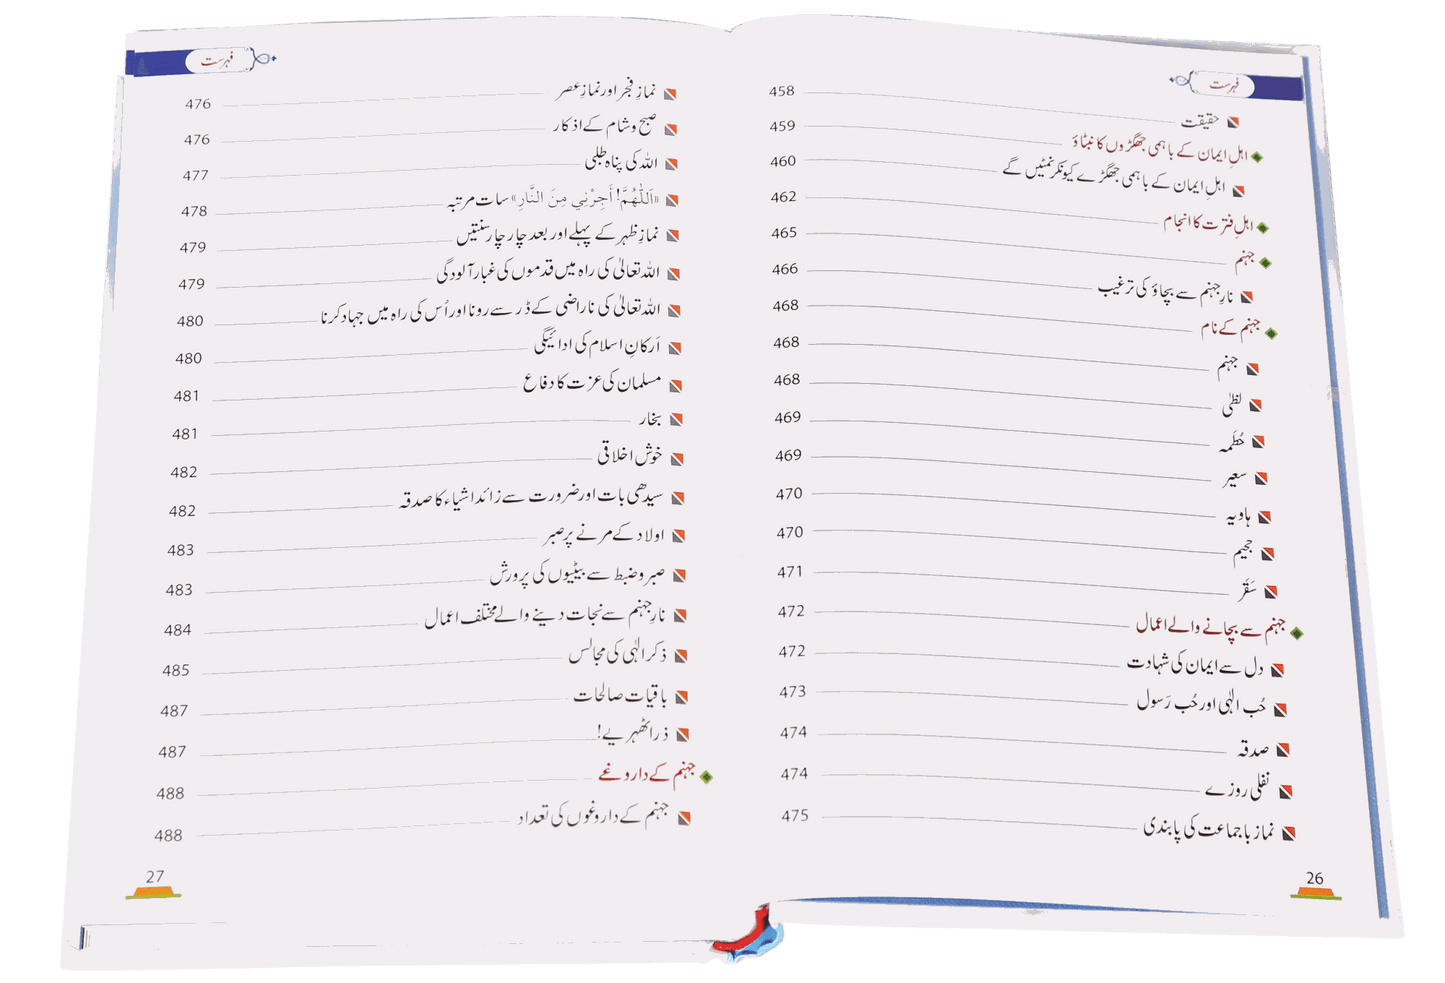 فہرست
حقیقت 458
اہلِ ایمان کے باہمی جھگڑوں کا نبٹاؤ 459
اہلِ ایمان کے باہمی جھگڑے کیونکر نمٹیں گے 460
اہلِ فترت کا انجام 462
جہنم 465
نارِ جہنم سے بچاؤ کی ترغیب 466
جہنم کے نام 468
جہنم 468
لظیٰ 468
حُطَمہ 469
سعیر 469
ہاویہ 470
جحیم 470
سَقَر 471
جہنم سے بچانے والے اعمال 472
دل سے ایمان کی شہادت 472
حُب الٰہی اور حُب رَسول 473
صدقہ 474
نفلی روزے 474
نماز باجماعت کی پابندی 475
26
فہرست
نمازِ فجر اور نمازِ عصر 476
صبح وشام کے اذکار 476
اللہ کی پناہ طلبی 477
«اَللّٰهُمَّ! أَجِرْنِي مِنَ النَّارِ» سات مرتبہ 478
نمازِ ظہر کے پہلے اور بعد چار چار سنتیں 479
اللہ تعالیٰ کی راہ میں قدموں کی غبار آلودگی 479
اللہ تعالیٰ کی ناراضی کے ڈر سے رونا اور اُس کی راہ میں جہاد کرنا 480
اَرکانِ اسلام کی ادائیگی 480
مسلمان کی عزت کا دفاع 481
بخار 481
خوش اخلاقی 482
سیدھی بات اور ضرورت سے زائد اشیاء کا صدقہ 482
اولاد کے مرنے پر صبر 483
صبر وضبط سے بیٹیوں کی پرورش 483
نارِ جہنم سے نجات دینے والے مختلف اعمال 484
ذکر الٰہی کی مجالس 485
باقیات صالحات 487
ذرا ٹھہریے! 487
جہنم کے داروغے 488
جہنم کے داروغوں کی تعداد 488
27